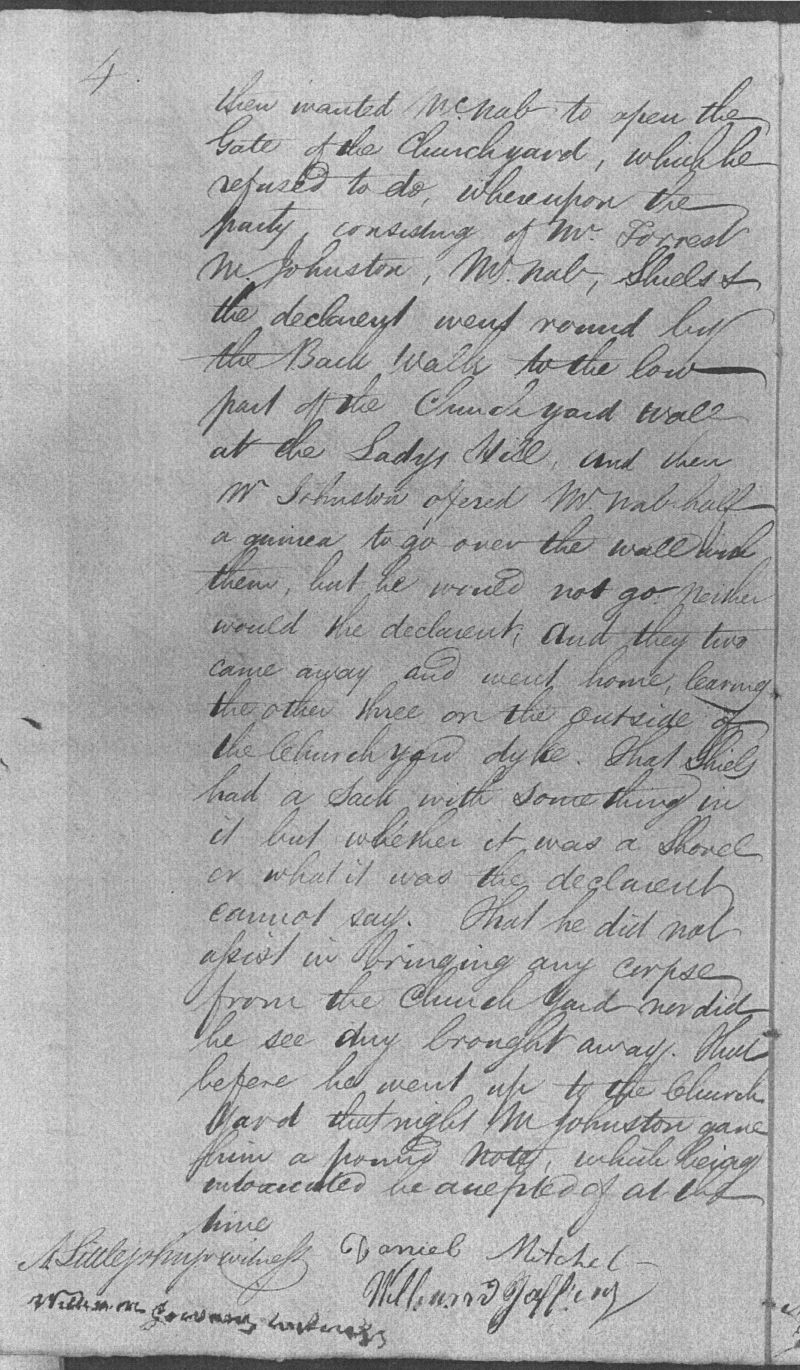 4
then wanted McNab to open the
Gate of the Churchyard, which he
refused to do, whereupon the
party, consisting of Mr. Forrest
Mr Johnston, McNab, Shiels &
the declarent went round by
the Back Walk to the low
part of the Church yard wall
at the Ladys Hill, and then
Mr Johnston offered McNab half
a guinea to go over the wall with
them, but he would not go neither
would the declarent, and they two
came away and went home, leaving
the other three on the outside of
the Church yard dyke. That Shiels
had a Sack with something in
it but whether it was a Shovel
or what it was the declarent
cannot say. That he did not
assist in bringing any corpse
from the Church Yard nor did
he see any brought away. That
before he went up to the Church
Yard that night Mr Johnston gave
him a pound note, which being
intoxicated he accepted of at the
time
Daniel Mitchel
A Littlejohn jr witness
William witness